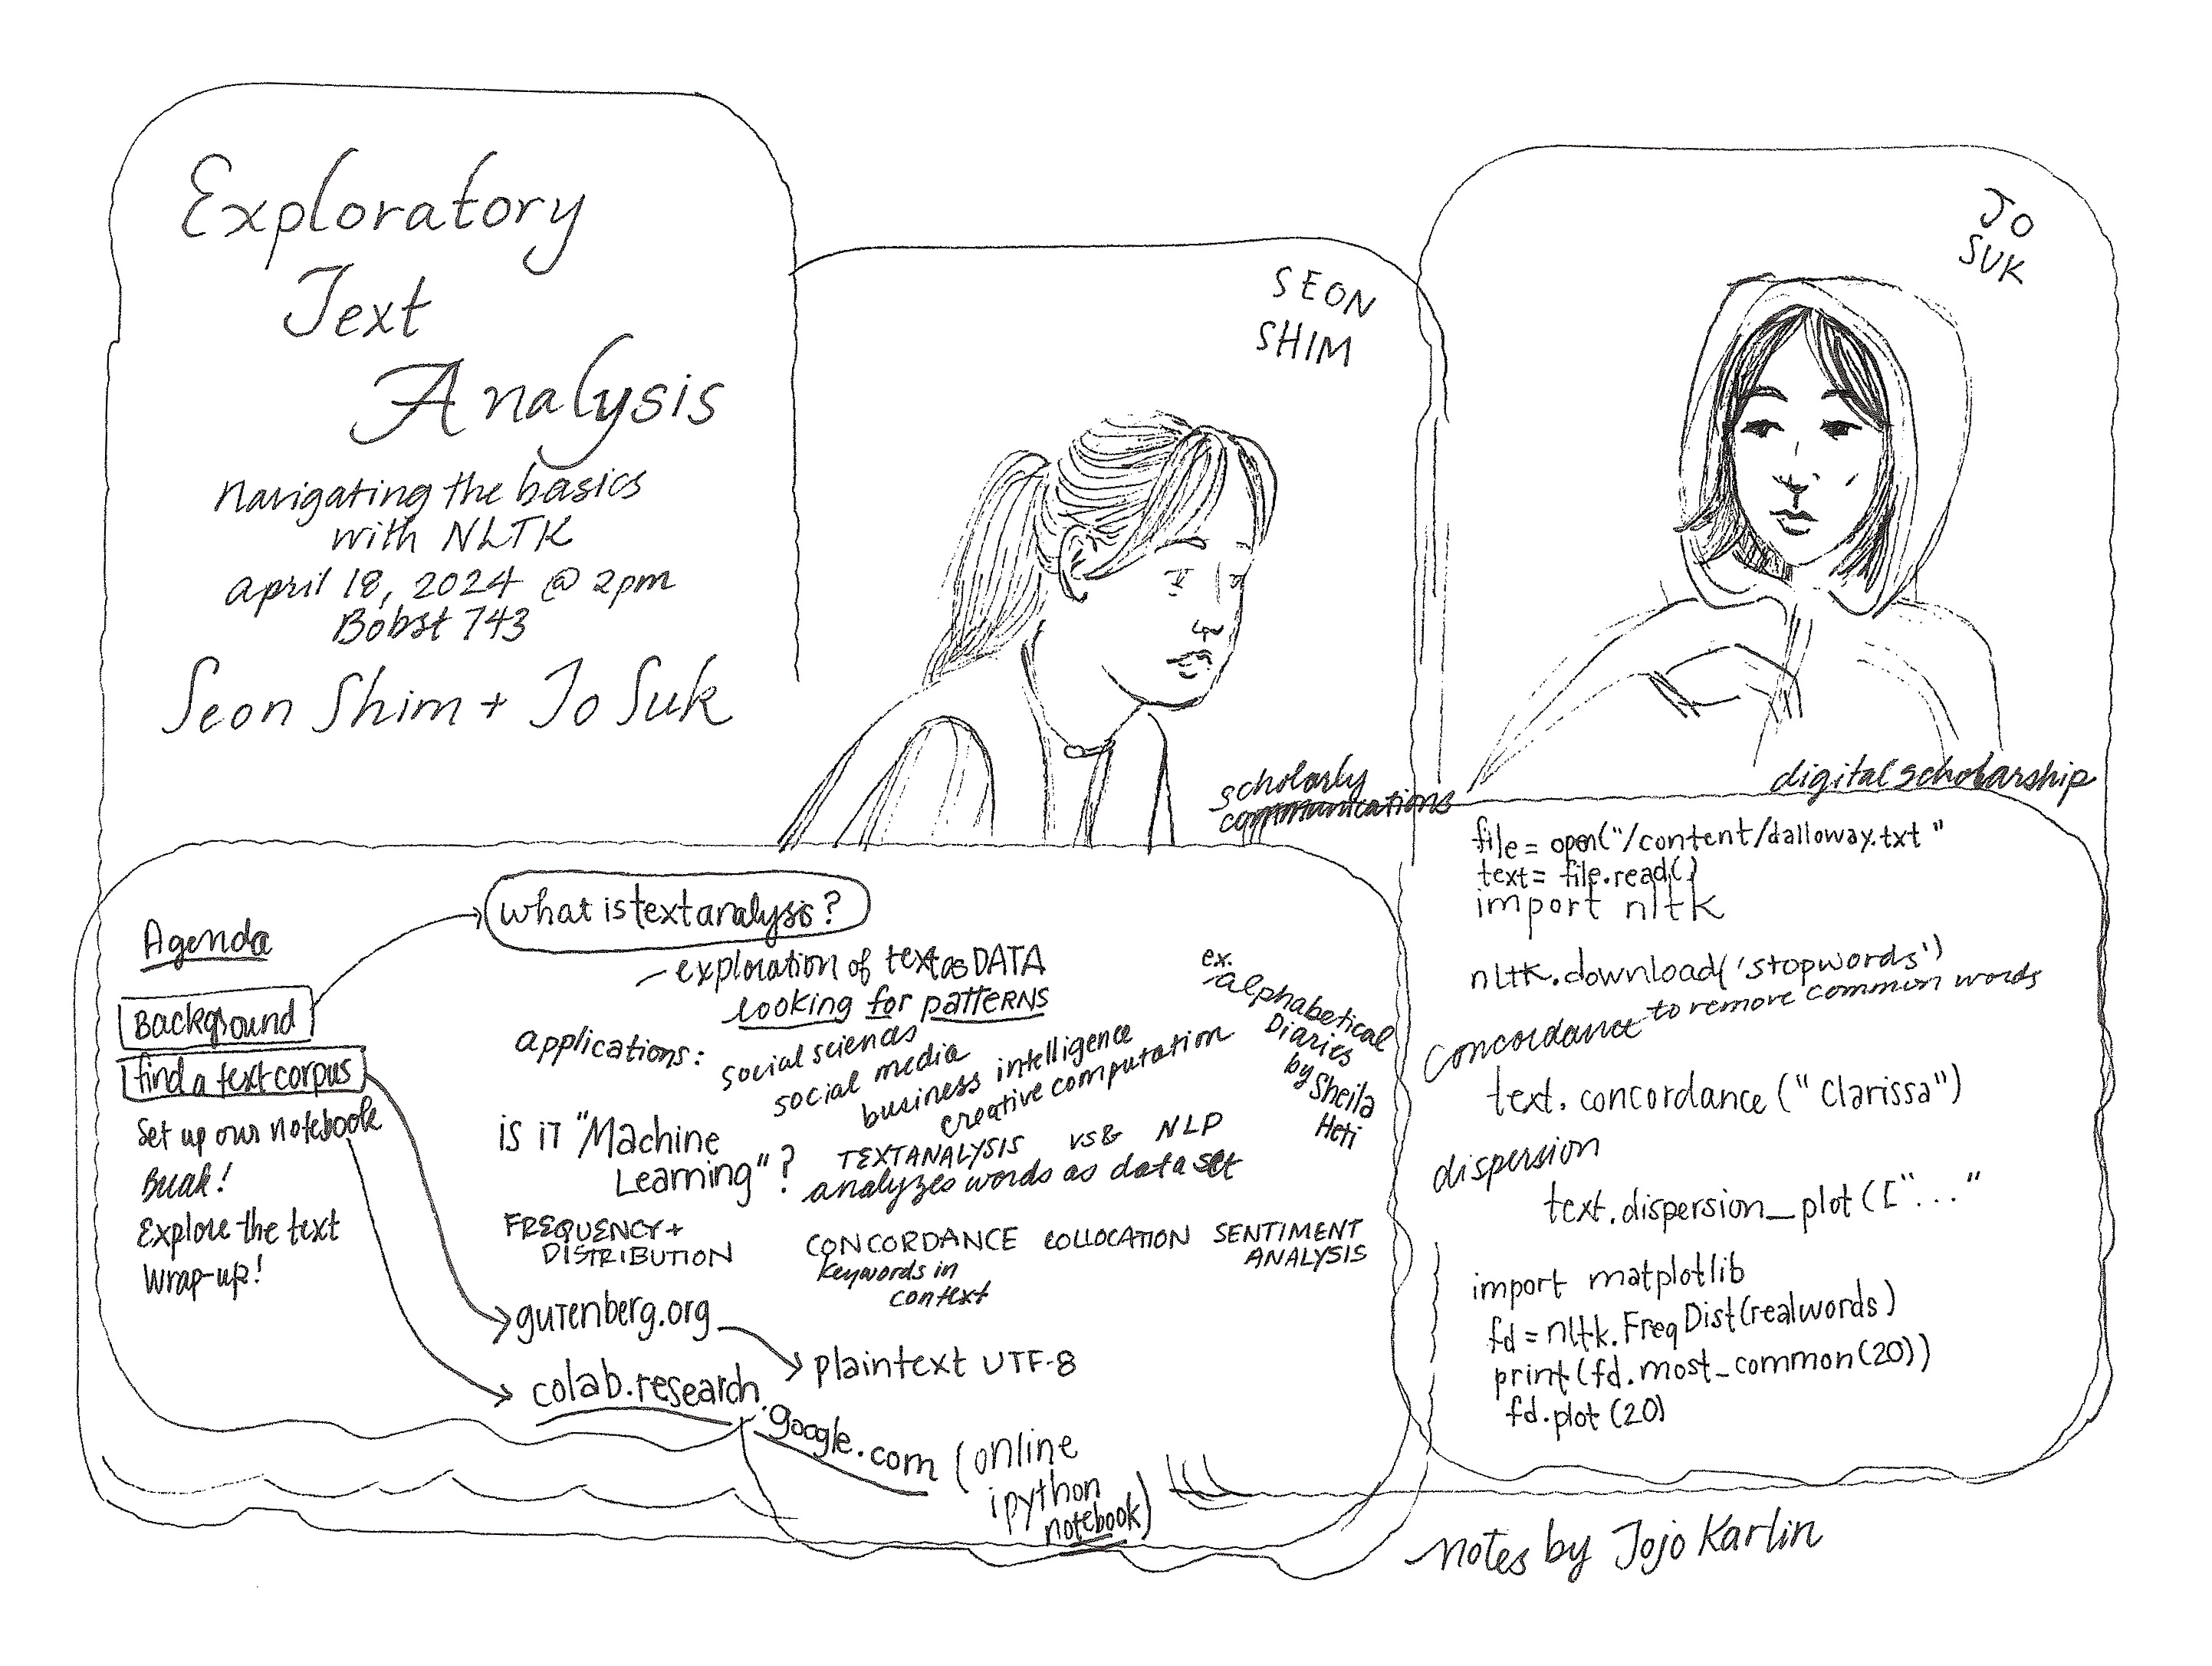 Exploratory
Text
Analysis
Navigating the basics
with NLTK
April 18, 2024 @ 2pm
Bobst 743
Seon Shim + Jo Suk
SEON
SHIM
scholarly
communications
JO
SUK
digital scholarship
Agenda
Background
find a text corpus
Set up our notebook
Break!
Explore the text
Wrap-up!
what is text analysis?
- exploration of text as DATA
looking for patterns
applications:
social sciences
social media
business intelligence
creative computation
ex.
Alphabetical
Diaries
by Sheila
Heti
is it "Machine
Learning"?
TEXT ANALYSIS vs & NLP
analyzes words as data set
FREQUENCY +
DISTRIBUTION
CONCORDANCE
keywords in
context
COLLOCATION
SENTIMENT
ANALYSIS
gutenberg.org
plaintext UTF-8
colab.research.
google.com (online
ipython
notebook)
file = open("/content/dalloway.txt"
text = file.read()
import nltk
nltk.download('stopwords')
to remove common words
concordance
text.concordance("Clarissa")
dispersion
text.dispersion_plot(["..."
import matplotlib
fd = nltk.FreqDist(realwords)
print(fd.most_common(20))
fd.plot(20)
notes by Jojo Karlin